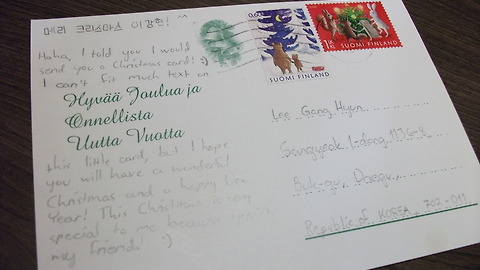 메리 크리스마스 이강현! ^^
Haha, I told you I would
send you a Christmas card! :)
I can't fit much text on
Hyvää Joulua ja
Onnellista
Uutta Vuotta
this little card, but I hope
you will have a wonderful
Christmas and a happy New
Year! This Christmas is very
special to me because you're
my friend! :)
SUOMI FINLAND
1 LK KL
SUOMI FINLAND
Lee Gang Hyun
Buk-gu, Daegu,
Republic of KOREA, 702-011